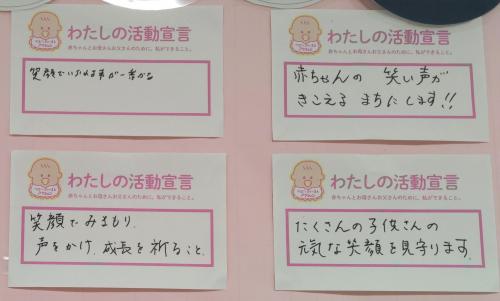 わたしの活動宣言
赤ちゃんとお母さんお父さんのために、私ができること。
笑顔でいられる事が一番かな
わたしの活動宣言
赤ちゃんとお母さんお父さんのために、私ができること。
赤ちゃんの 笑い声が
きこえる まちにします!!
わたしの活動宣言
赤ちゃんとお母さんお父さんのために、私ができること。
笑顔でみまもり、
声をかけ、成長を祈ること、
わたしの活動宣言
赤ちゃんとお母さんお父さんのために、私ができること。
たくさんの子供さんの
元気な笑顔を見守ります。